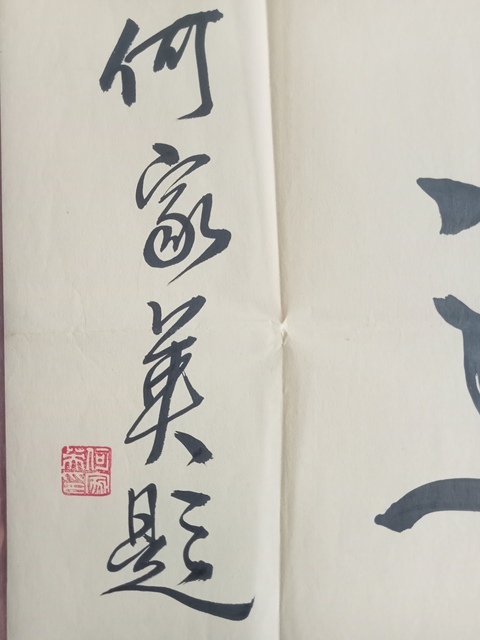 何家英题
何家英印